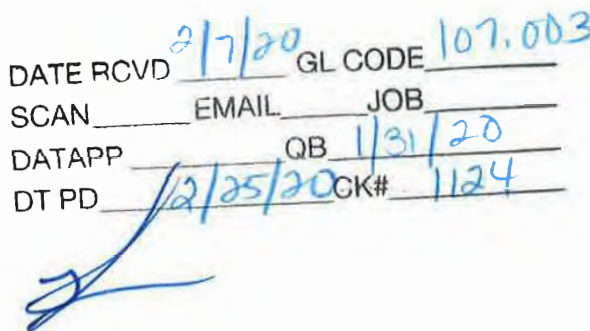 DATE RCVD 2/7/20 GL CODE 107.003
SCAN EMAIL JOB
DATAPP QB 1/31/20
DT PD 2/25/20 CK# 1124